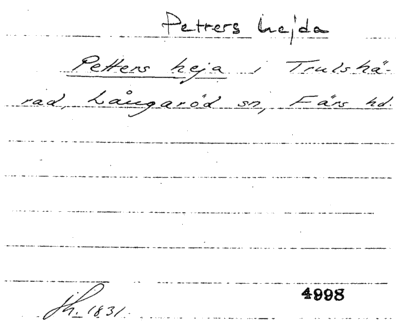 Petters hejda
Petters heja i Trulshä-
rad, Långaröd sn, Färs hd.
1831.
4998